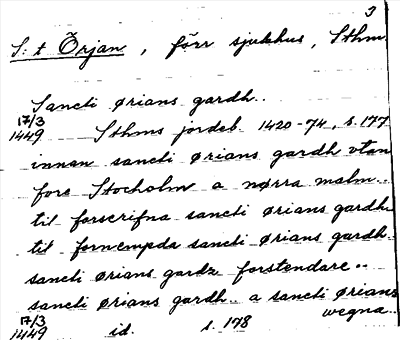 3
S:t Örjan, förr sjukhus, Sthm
Sancti ørians gardh..
17/3
1449 Sthms jordeb. 1420-74, s. 177
innan sancti ørians gardh vtan
fore Stocholm a nørra malm..
til forscrifna sancti ørians gardh
til fornempda sancti ørians gardh..
sancti ørians gardz forstendare..
sancti ørians gardh.. a sancti ørians
wegna..
17/3
1449 id. s. 178